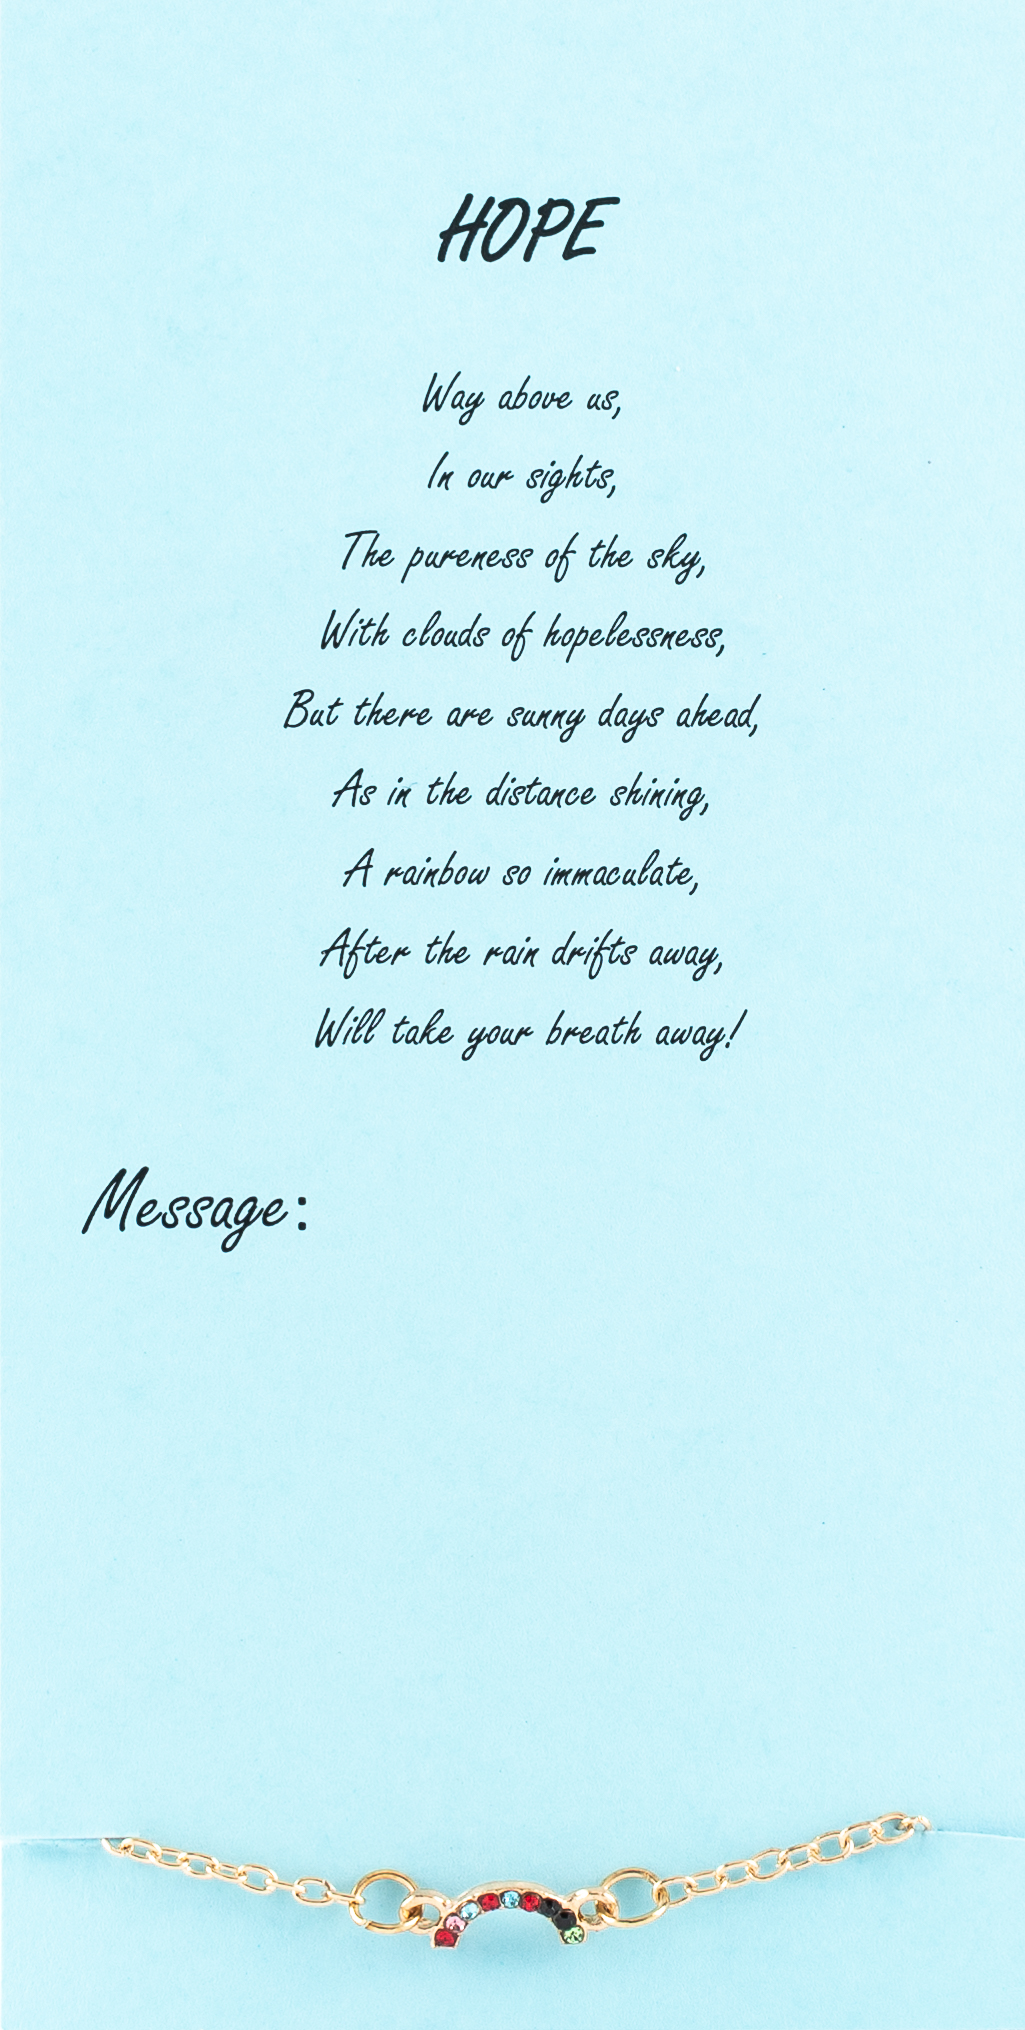 HOPE
Way above us,
In our sights,
The pureness of the sky,
With clouds of hopelessness,
But there are sunny days ahead,
As in the distance shining,
A rainbow so immaculate,
After the rain drifts away,
Will take your breath away!
Message: